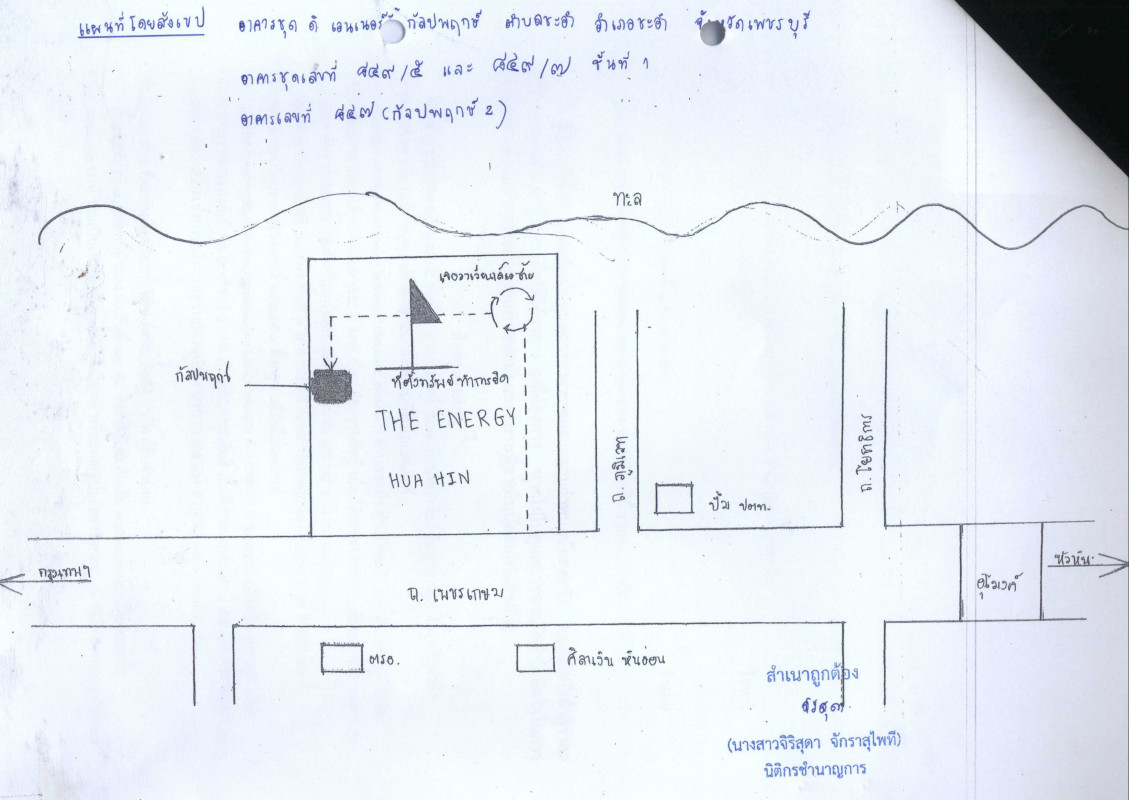 แผนที่โดยสังเขป อาคารชุด ดิ เอนเนอร์ยี่ กัลปพฤกษ์ ตำบลชะอำ อำเภอชะอำ จังหวัดเพชรบุรี
อาคารชุดเลขที่ ๘๕๙/๕ และ ๘๕๙/๗ ชั้นที่ ๑
อาคารเลขที่ ๘๕๗ (กัลปพฤกษ์ 2)
ทะเล
เจอวงเวียนเลี้ยวซ้าย
กัลปพฤกษ์
ที่ตั้งทรัพย์ทำการยึด
THE ENERGY
HUA HIN
ถ. ภูมิเวท
ถ. โยธาธิการ
ปั๊ม ปตท.
กรุงเทพฯ
หัวหิน
อุโมงค์
ถ. เพชรเกษม
ตรอ.
ศิลาเงิน หินอ่อน
สำเนาถูกต้อง
จิริสุดา
(นางสาวจิริสุดา จักราสุไพที)
นิติกรชำนาญการ